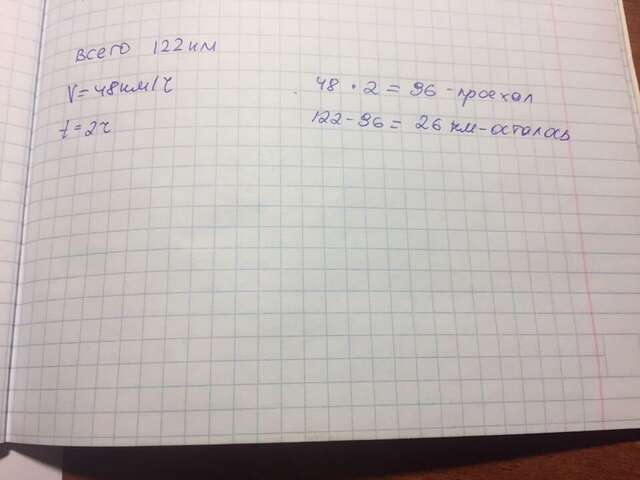 всего 122 км
V = 48 км/ч
t = 2ч
48 · 2 = 96 - проехал
122 - 96 = 26 км - осталось